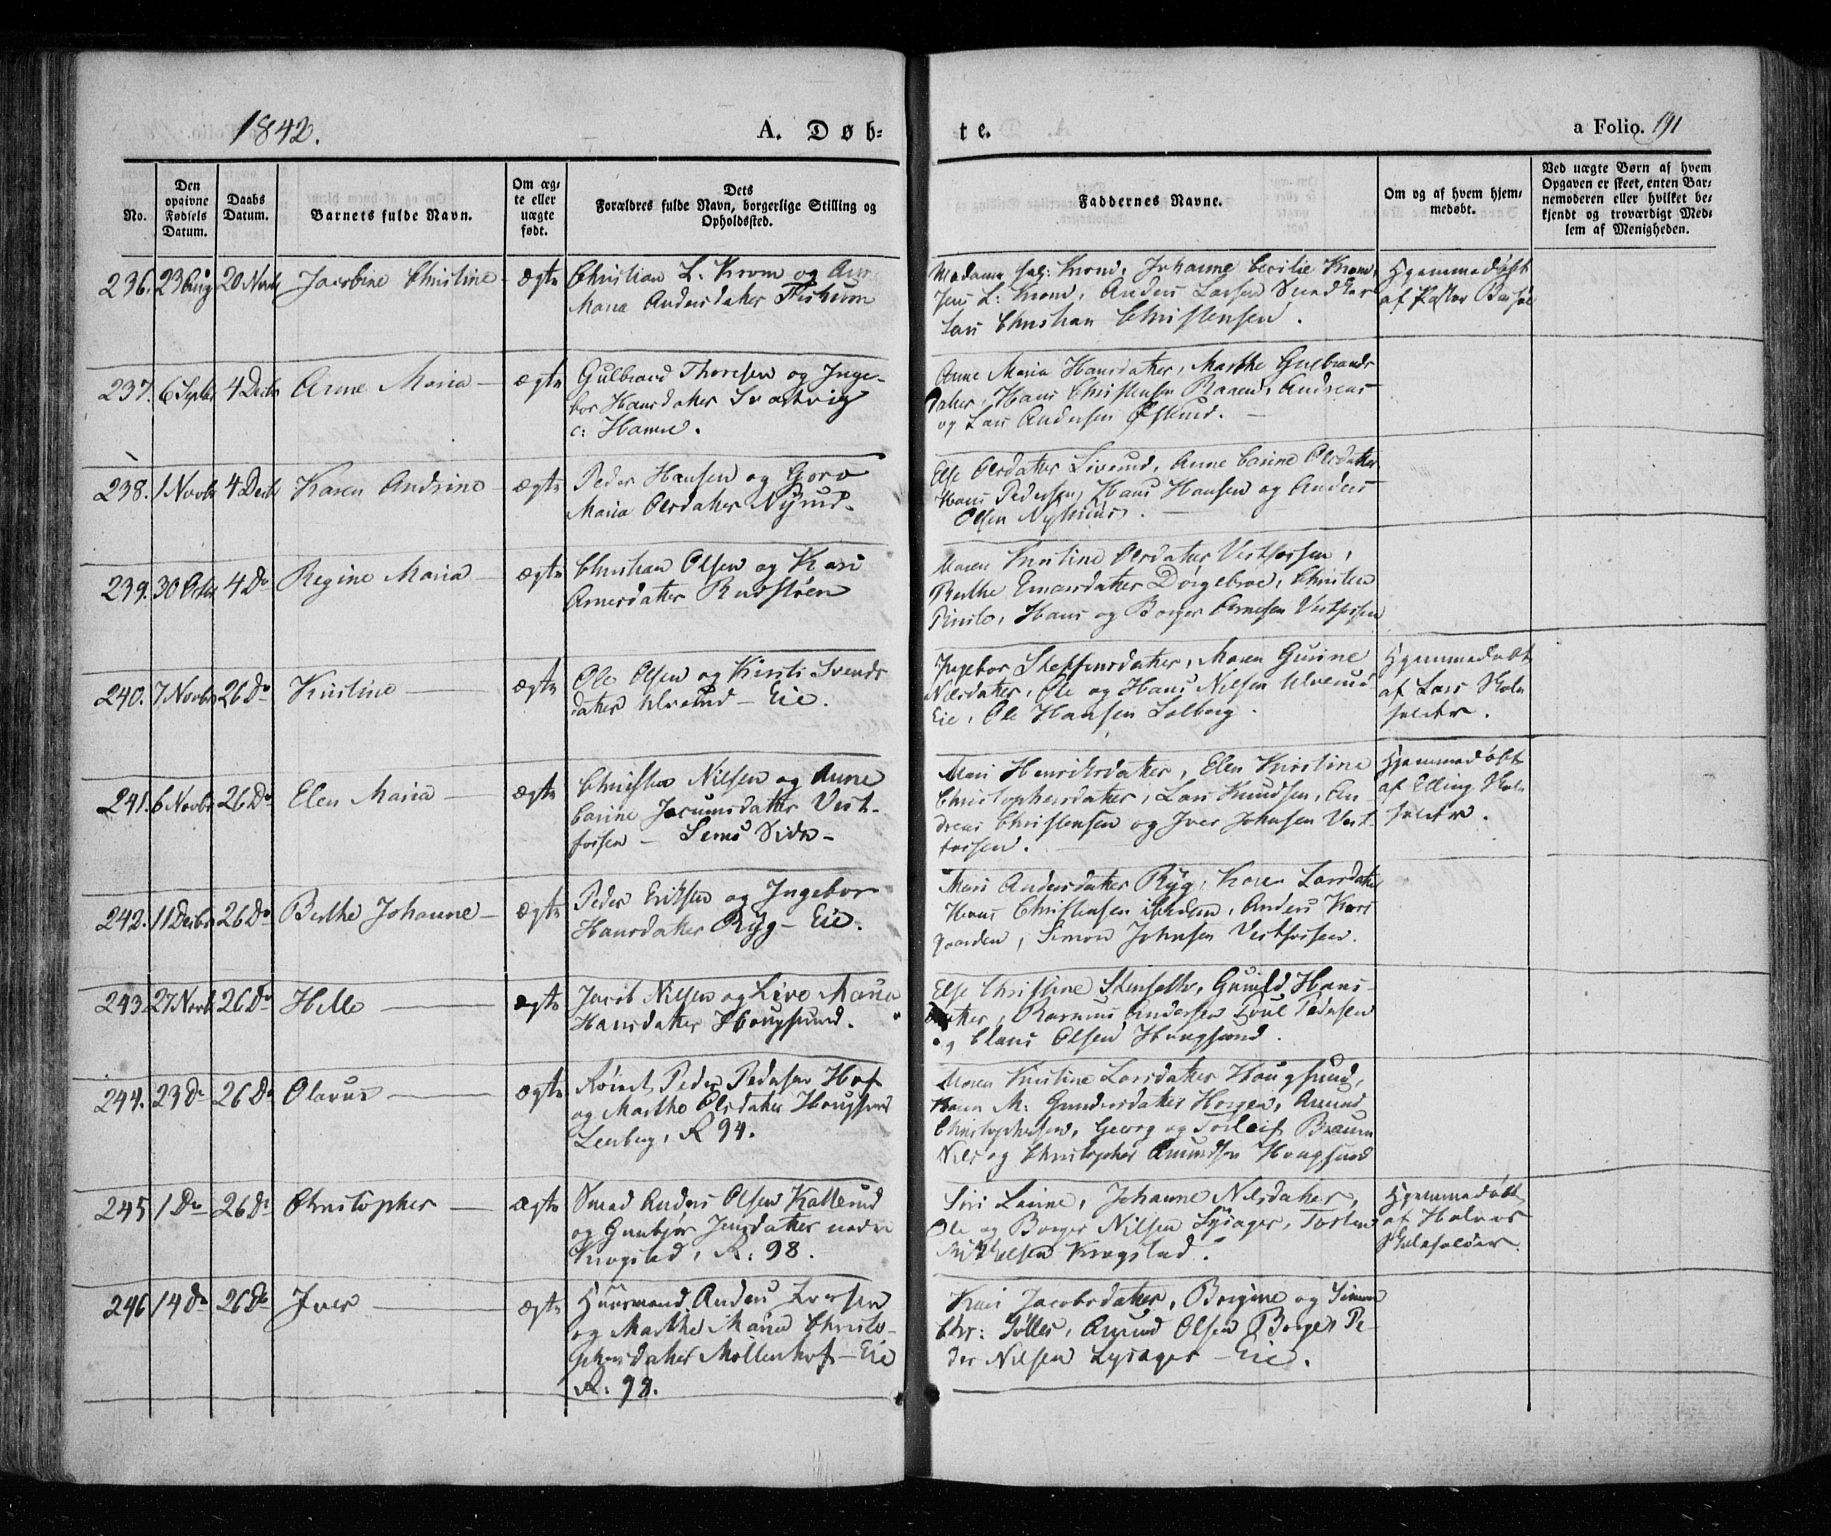 1842.
A. Døb-
te.
a Folio. 191
No.
Den opgivne Fødsels Datum.
Daabs Datum.
Barnets fulde Navn.
Om ægte eller uægte født.
Dets
Forældres fulde Navn, borgerlige Stilling og
Opholdssted.
Faddernes Navne.
Om og af hvem hjem-
medøbt.
Ved uægte Børn af hvem
Opgaven er skeet, enten Bar-
nemoderen eller hvilket be-
kjendt og troværdigt Med-
lem af Menigheden.
236. 23 Aug 20 Novb Jacobine Christine ægte
Christian L: Krom og
Maria Andersdatter Fiskum
Madame Krom, Johanne Cecilie Krom,
Jens L: Krom, Anders Larsen Snedker
Lars Christian Christensen.
Hjemmedøbt
af Pastor
237. 6 Septbr 4 Decbr Anne Maria ægte
Gulbrand Thoresen og Inge-
bor Hansdatter
c: Hamre.
Anne Maria Hansdatter, Marthe Gulbrands
datter, Hans Christensen Raaen, Andreas
og Lars Andersen
238. 1 Novbr 4 Decbr Karen Andrine ægte
Peder Hansen og Goro
Maria Olsdatter Nyrud.
Else Olsdatter Liverud, Anne Carine Olsdatter
Hans Pedersen, Hans Hansen og Anders
Olsen
239. 30 Octbr 4 Do Regine Maria ægte
Christian Olsen og Kari
Arnesdatter
Maren Kirstine Olsdatter Vestfossen,
Berthe Einarsdatter Christen
Hans og Borger Arnesen Vestfossen
240. 7 Novbr 26 Do Kirstine ægte
Ole Olsen og Kirsti Svends
datter Ulverud - Eie.
Ingebor Steffensdatter, Maren Gurine
Nilsdatter, Ole og Hans Nilsen Ulverud
Eie, Ole Hansen Solberg.
Hjemmedøbt
af Lars Skole
holder.
241. 6 Novbr 26 Do Elen Maria ægte
Christen Nilsen og Anne
Carine Jocumsdatter Vest-
fossen - Sems Side -
Mari Henriksdatter, Elen Kirstine
Christophersdatter, Lars Knudsen, An-
dreas Christensen og Iver Johnsen Vest
fossen.
Hjemmedøbt
af Elling Skole
holder.
242. 11 Decbr 26 Do Berthe Johanne ægte
Peder Eriksen og Ingebor
Hansdatter Ryg - Eie.
Mari Andersdatter Ryg, Karen Larsdatter
Hans Christensen ibidem, Anders Kors
gaarden, Simon Johnsen Vestfossen.
243. 27 Novb 26 Do Helle ægte
Jacob Nilsen og Live Maria
Hansdatter Hougsund.
Else Christine Gunild Hans-
datter, Rasmus Andersen Poul Pedersen
og Claus Olsen Hougsund.
244. 23 Do 26 Do Olavus ægte
Peder Pedersen Hof
og Marthe Olsdatter Hougsund
Lerberg, R 94.
Maren Kirstine Larsdatter Hougsund,
Karen M: Gundersdatter Horgen, Amund
Christophersen, Georg og Torleif Braum
Nils og Christopher Amundsen Hougsund
245. 1 Do 26 Do Christopher ægte
Smed Anders Olsen Kallerud
og Gunbjør Jensdatter nedre
Krogstad, R: 98.
Siri Johanne Nilsdatter,
Ole og Borger Nilsen Lysager, Tosten
Mikkelsen Krogstad.
Hjemmedøbt
af Halvor
Skoleholder.
246. 14 Do 26 Do Iver ægte
Huusmand Anders Iversen
og Marthe Maria Christo-
phersdatter Møllenhof - Eie
R: 98.
Kari Jacobsdatter, Bergine og Simon
Chr: Amund Olsen Borger Pe-
der Nilsen Lysager - Eie.